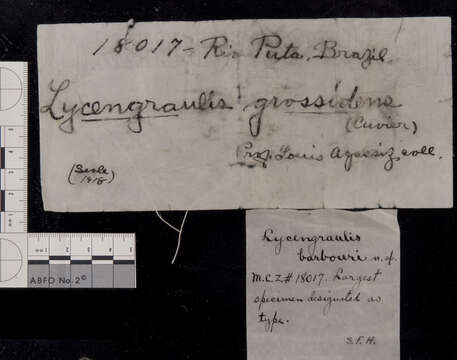 18017 - Rio Puta, Brazil.
Lycengraulis grossidens
(Cuvier)
Prof. Louis Agassiz, coll.
(Seale
1918)
Lycengraulis
barbouri n. sp.
M.C.Z # 18017. Largest
specimen designated as
type.
S.F.H.
ABFO No. 2 ©